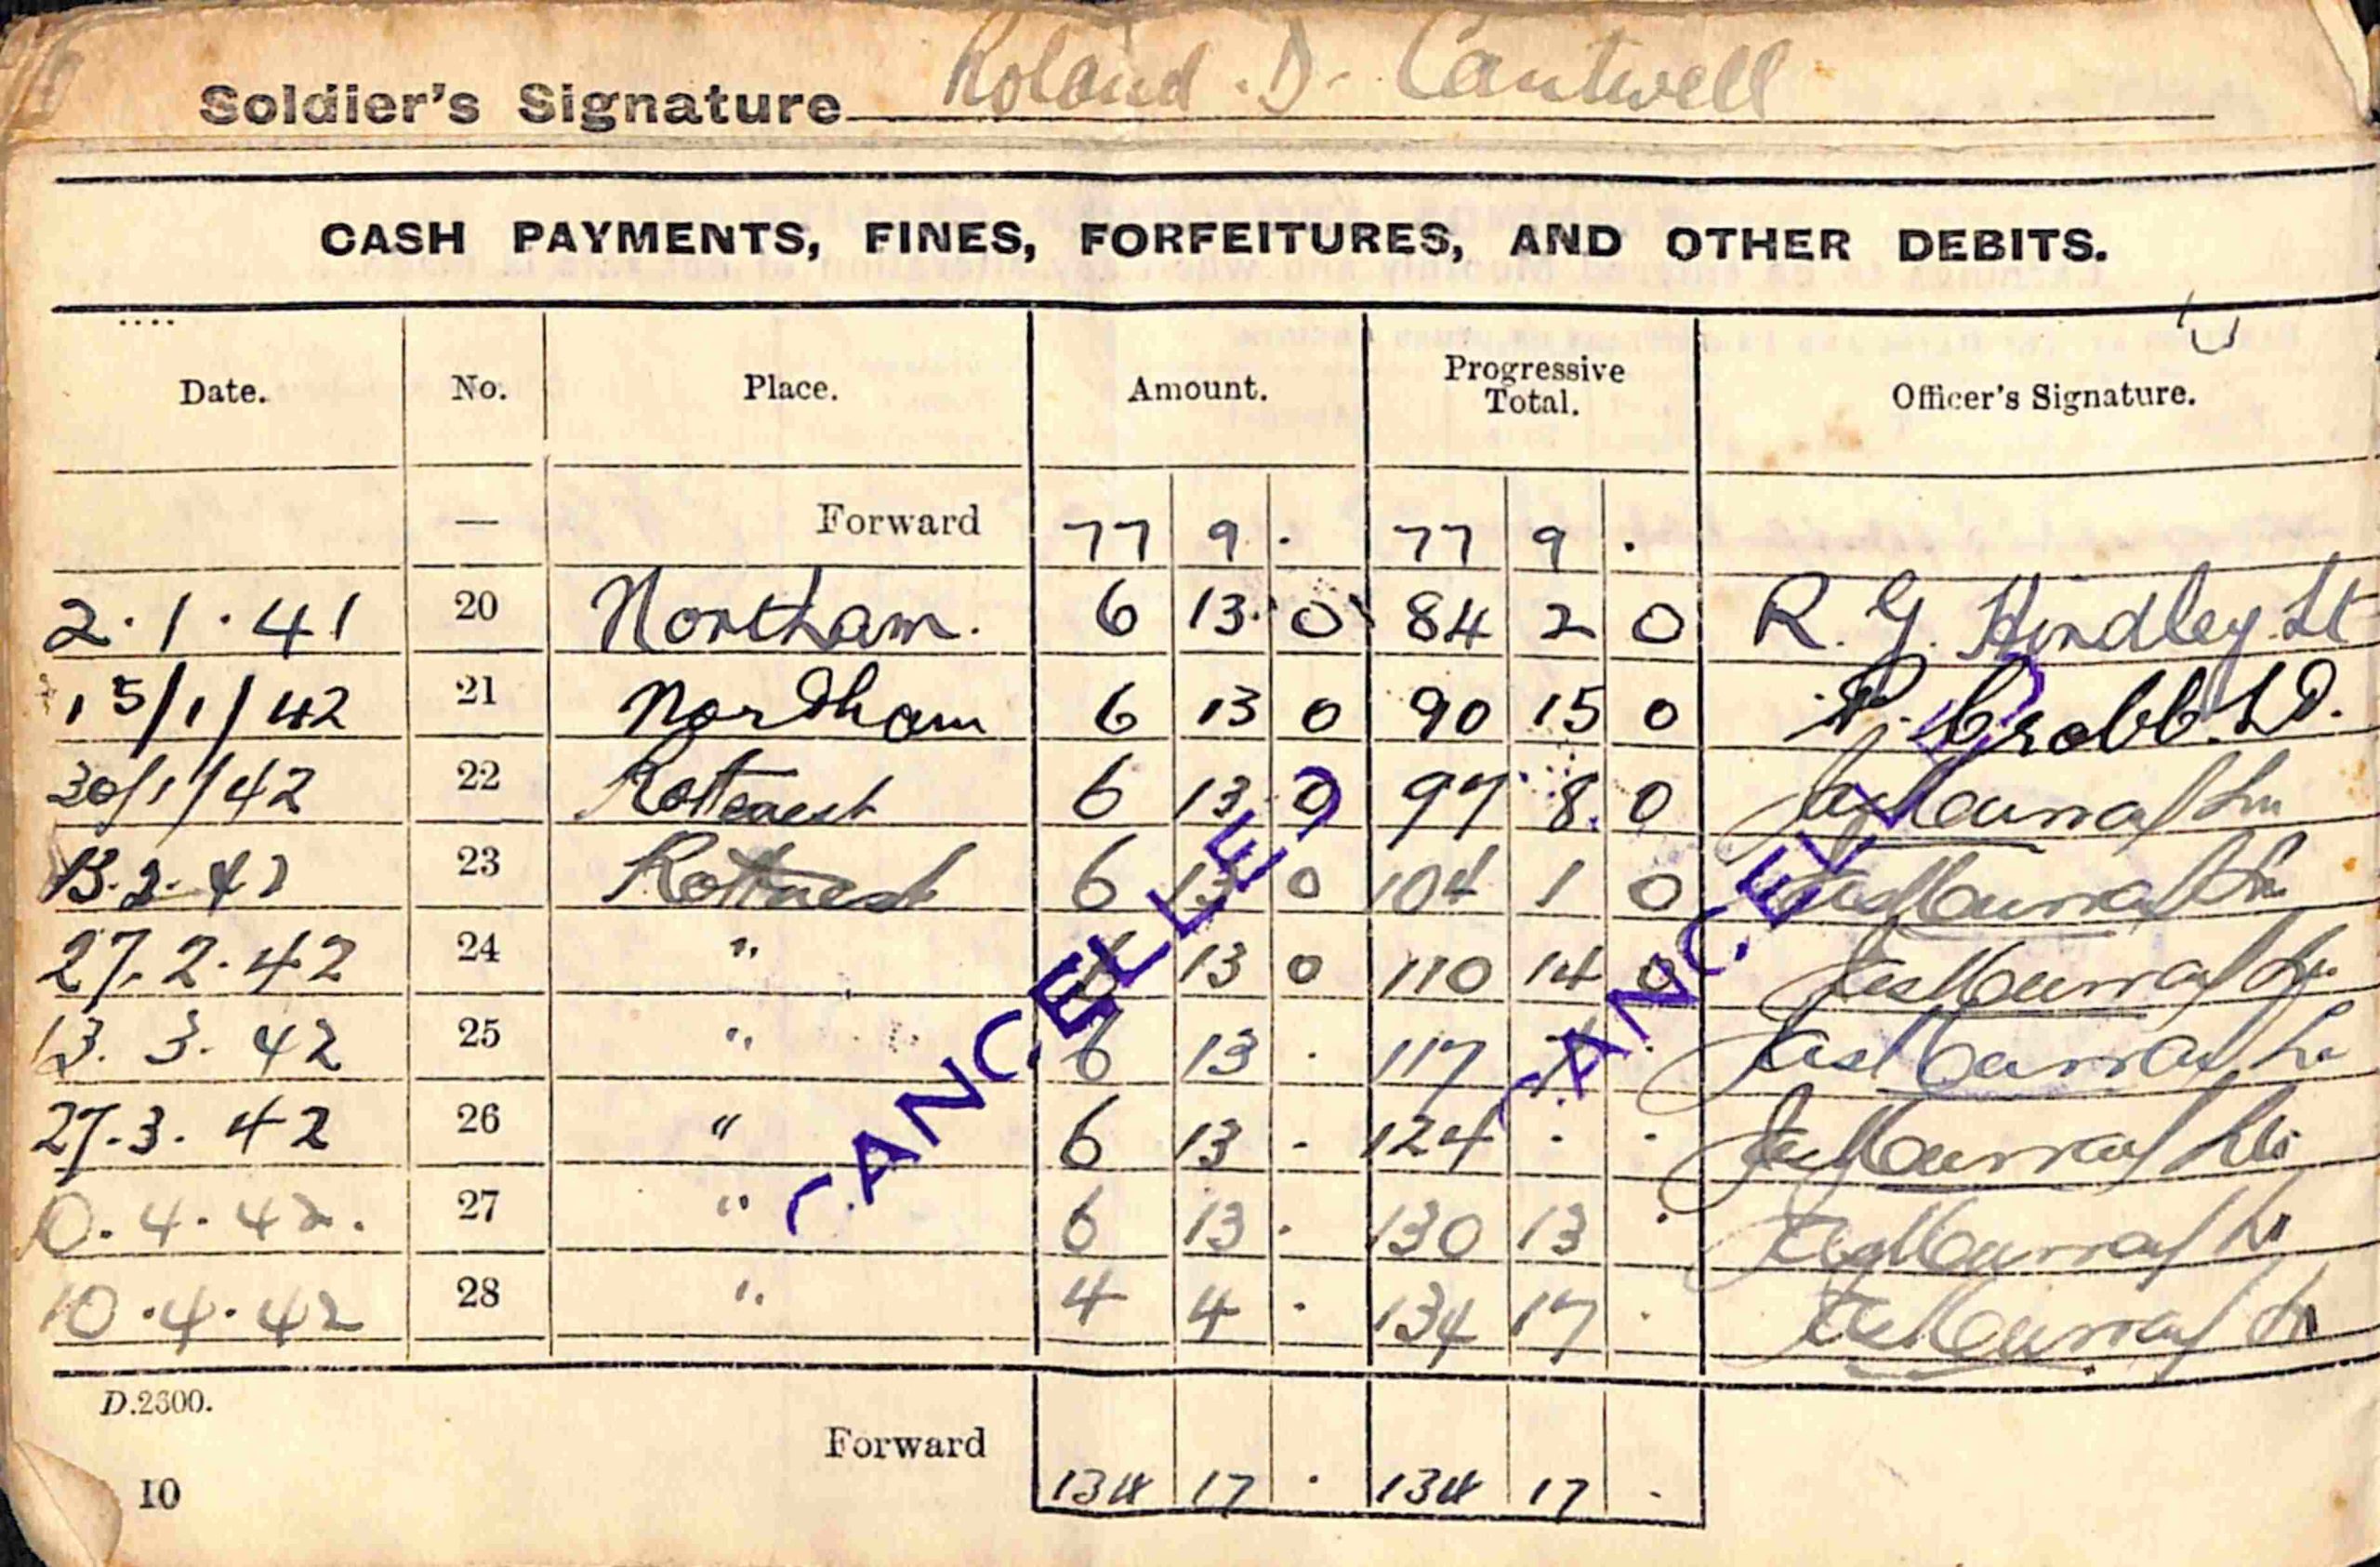 Soldier's Signature Roland . D. Cantwell
CASH PAYMENTS, FINES, FORFEITURES, AND OTHER DEBITS.
Date. No. Place. Amount. Progressive Total. Officer's Signature.
— Forward 77 9 . 77 9 .
2.1.41 20 Northam. 6 13 0 84 2 0 R. G. Hindley Lt
15/1/42 21 Nordham 6 13 0 90 15 0
30/1/42 22 Rottnest 6 13 0 97 8 0 Jas Murray
13.2.42 23 Rottnest 6 13 0 104 1 0 Jas Murray
27.2.42 24 " 6 13 0 110 14 0 Jas Murray
13.3.42 25 " 6 13 . 117 7 . Jas Murray
27.3.42 26 " 6 13 - 124 . . Jas Murray
0.4.42. 27 " 6 13 . 130 13 . Jas Murray
10.4.42 28 " 4 4 . 134 17 . Jas Murray
CANCELLED
CANCELLED
D.2600.
Forward 134 17 . 134 17 .
10